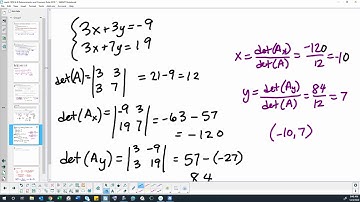 3x+3y=-9
3x+7y=19
det(A)=|3 3|
|3 7| =21-9=12
det(Ax)=|-9 3|
|19 7| =-63-57
=-120
det(Ay)=|3 -9|
|3 19| =57-(-27)
84
x=det(Ax)/det(A)=-120/12=-10
y=det(Ay)/det(A)=84/12=7
(-10,7)